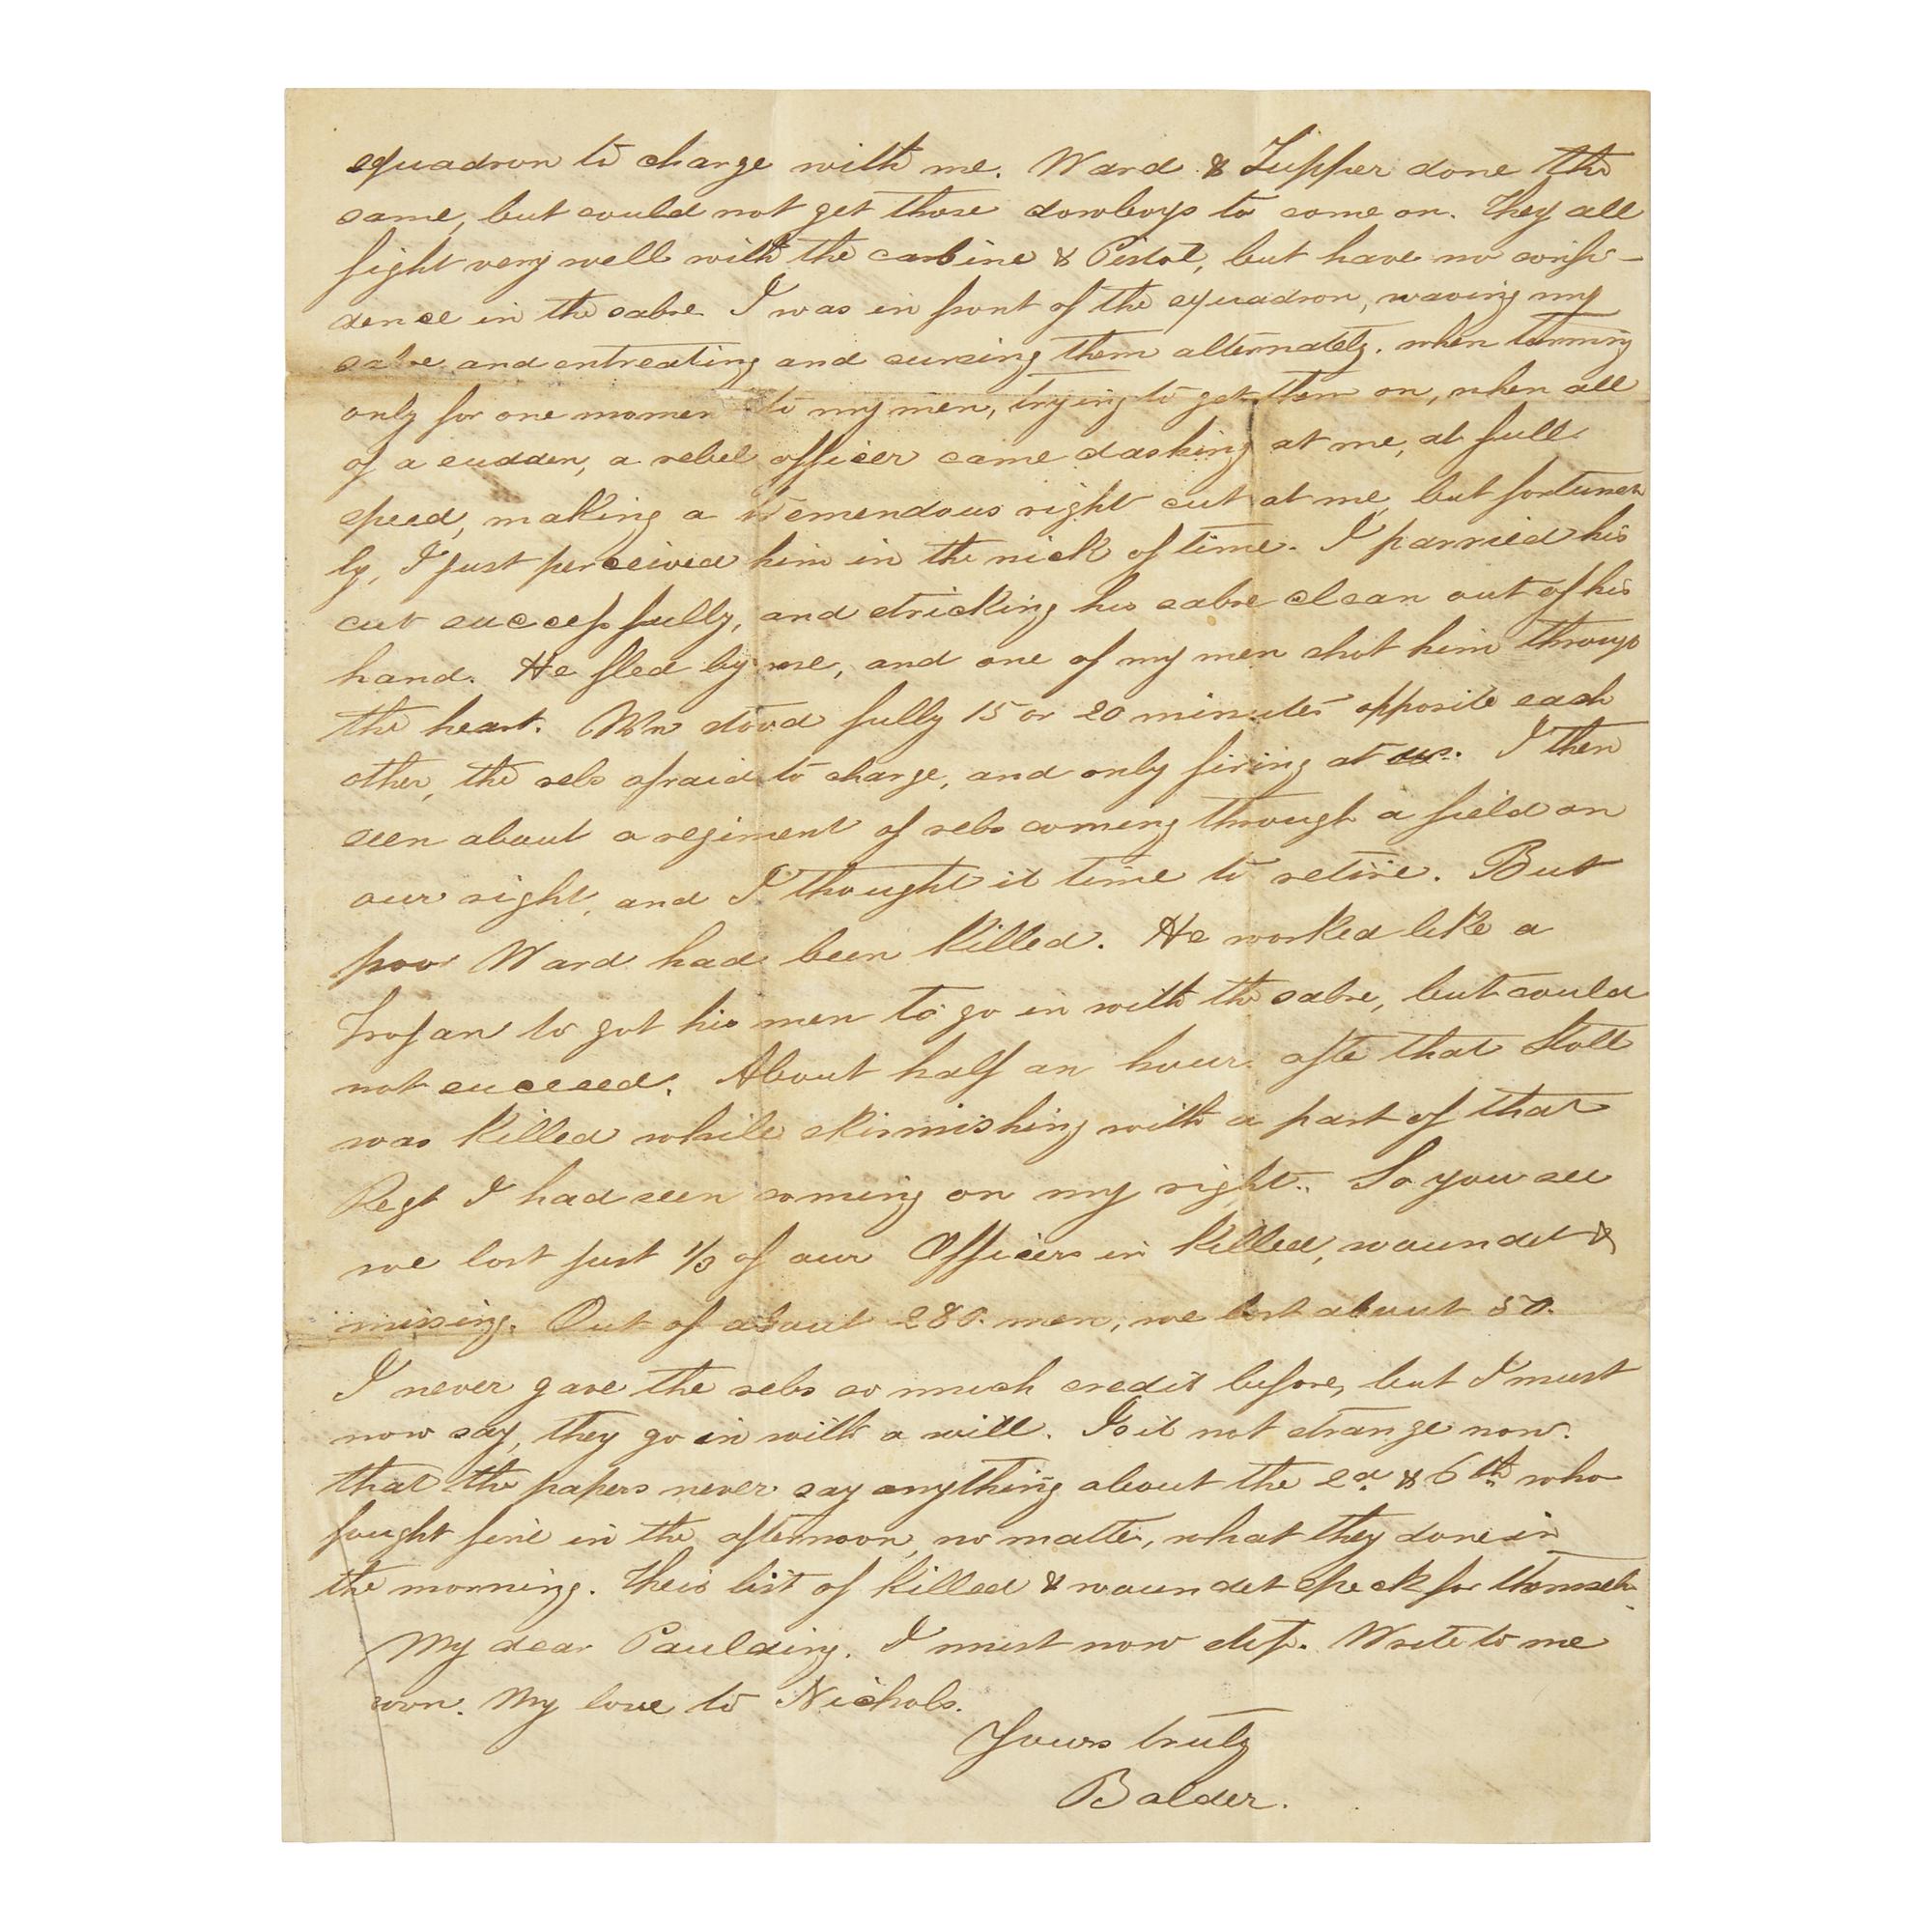 squadron to charge with me. Ward & Tupper done the
same, but could not get those cowboys to come on. They all
fight very well with the carbine & Pistol, but have no confi-
dence in the sabre I was in front of the squadron, waving my
sabre and entreating and cursing them alternately. when turning
only for one moment to my men, trying to get them on, when all
of a sudden, a rebel officer came dashing at me, at full
speed, making a tremendous right cut at me, but fortunate
ly, I just perceived him in the nick of time. I parried his
cut successfully, and stricking his sabre clean out of his
hand. He fled by me, and one of my men shot him through
the heart. We stood fully 15 or 20 minutes opposite each
other, the rebs afraid to charge, and only firing at us. I then
seen about a regiment of rebs coming through a field on
our right, and I thought it time to retire. But
poor Ward had been killed. He worked like a
Trojan to got his men to go in with the sabre, but could
not succeed. About half an hour afte that Stoll
was killed while skirmishing with a part of that
Regt I had seen coming on my right. So you see
we lost just 1/3 of our Officers in killed, woundet &
missing. Out of about 280 men, we lost about 50.
I never gave the rebs so much credit before, but I must
now say, they go in with a will. Is it not strange now.
that the papers never say anything about the 2d & 6th who
fought fine in the afternoon, no matter, what they done in
the morning. Theis list of killed & woundet speck for themselv
My dear Paulding. I must now stop. Write to me
soon. My love to Nichols.
Yours truly
Balder.